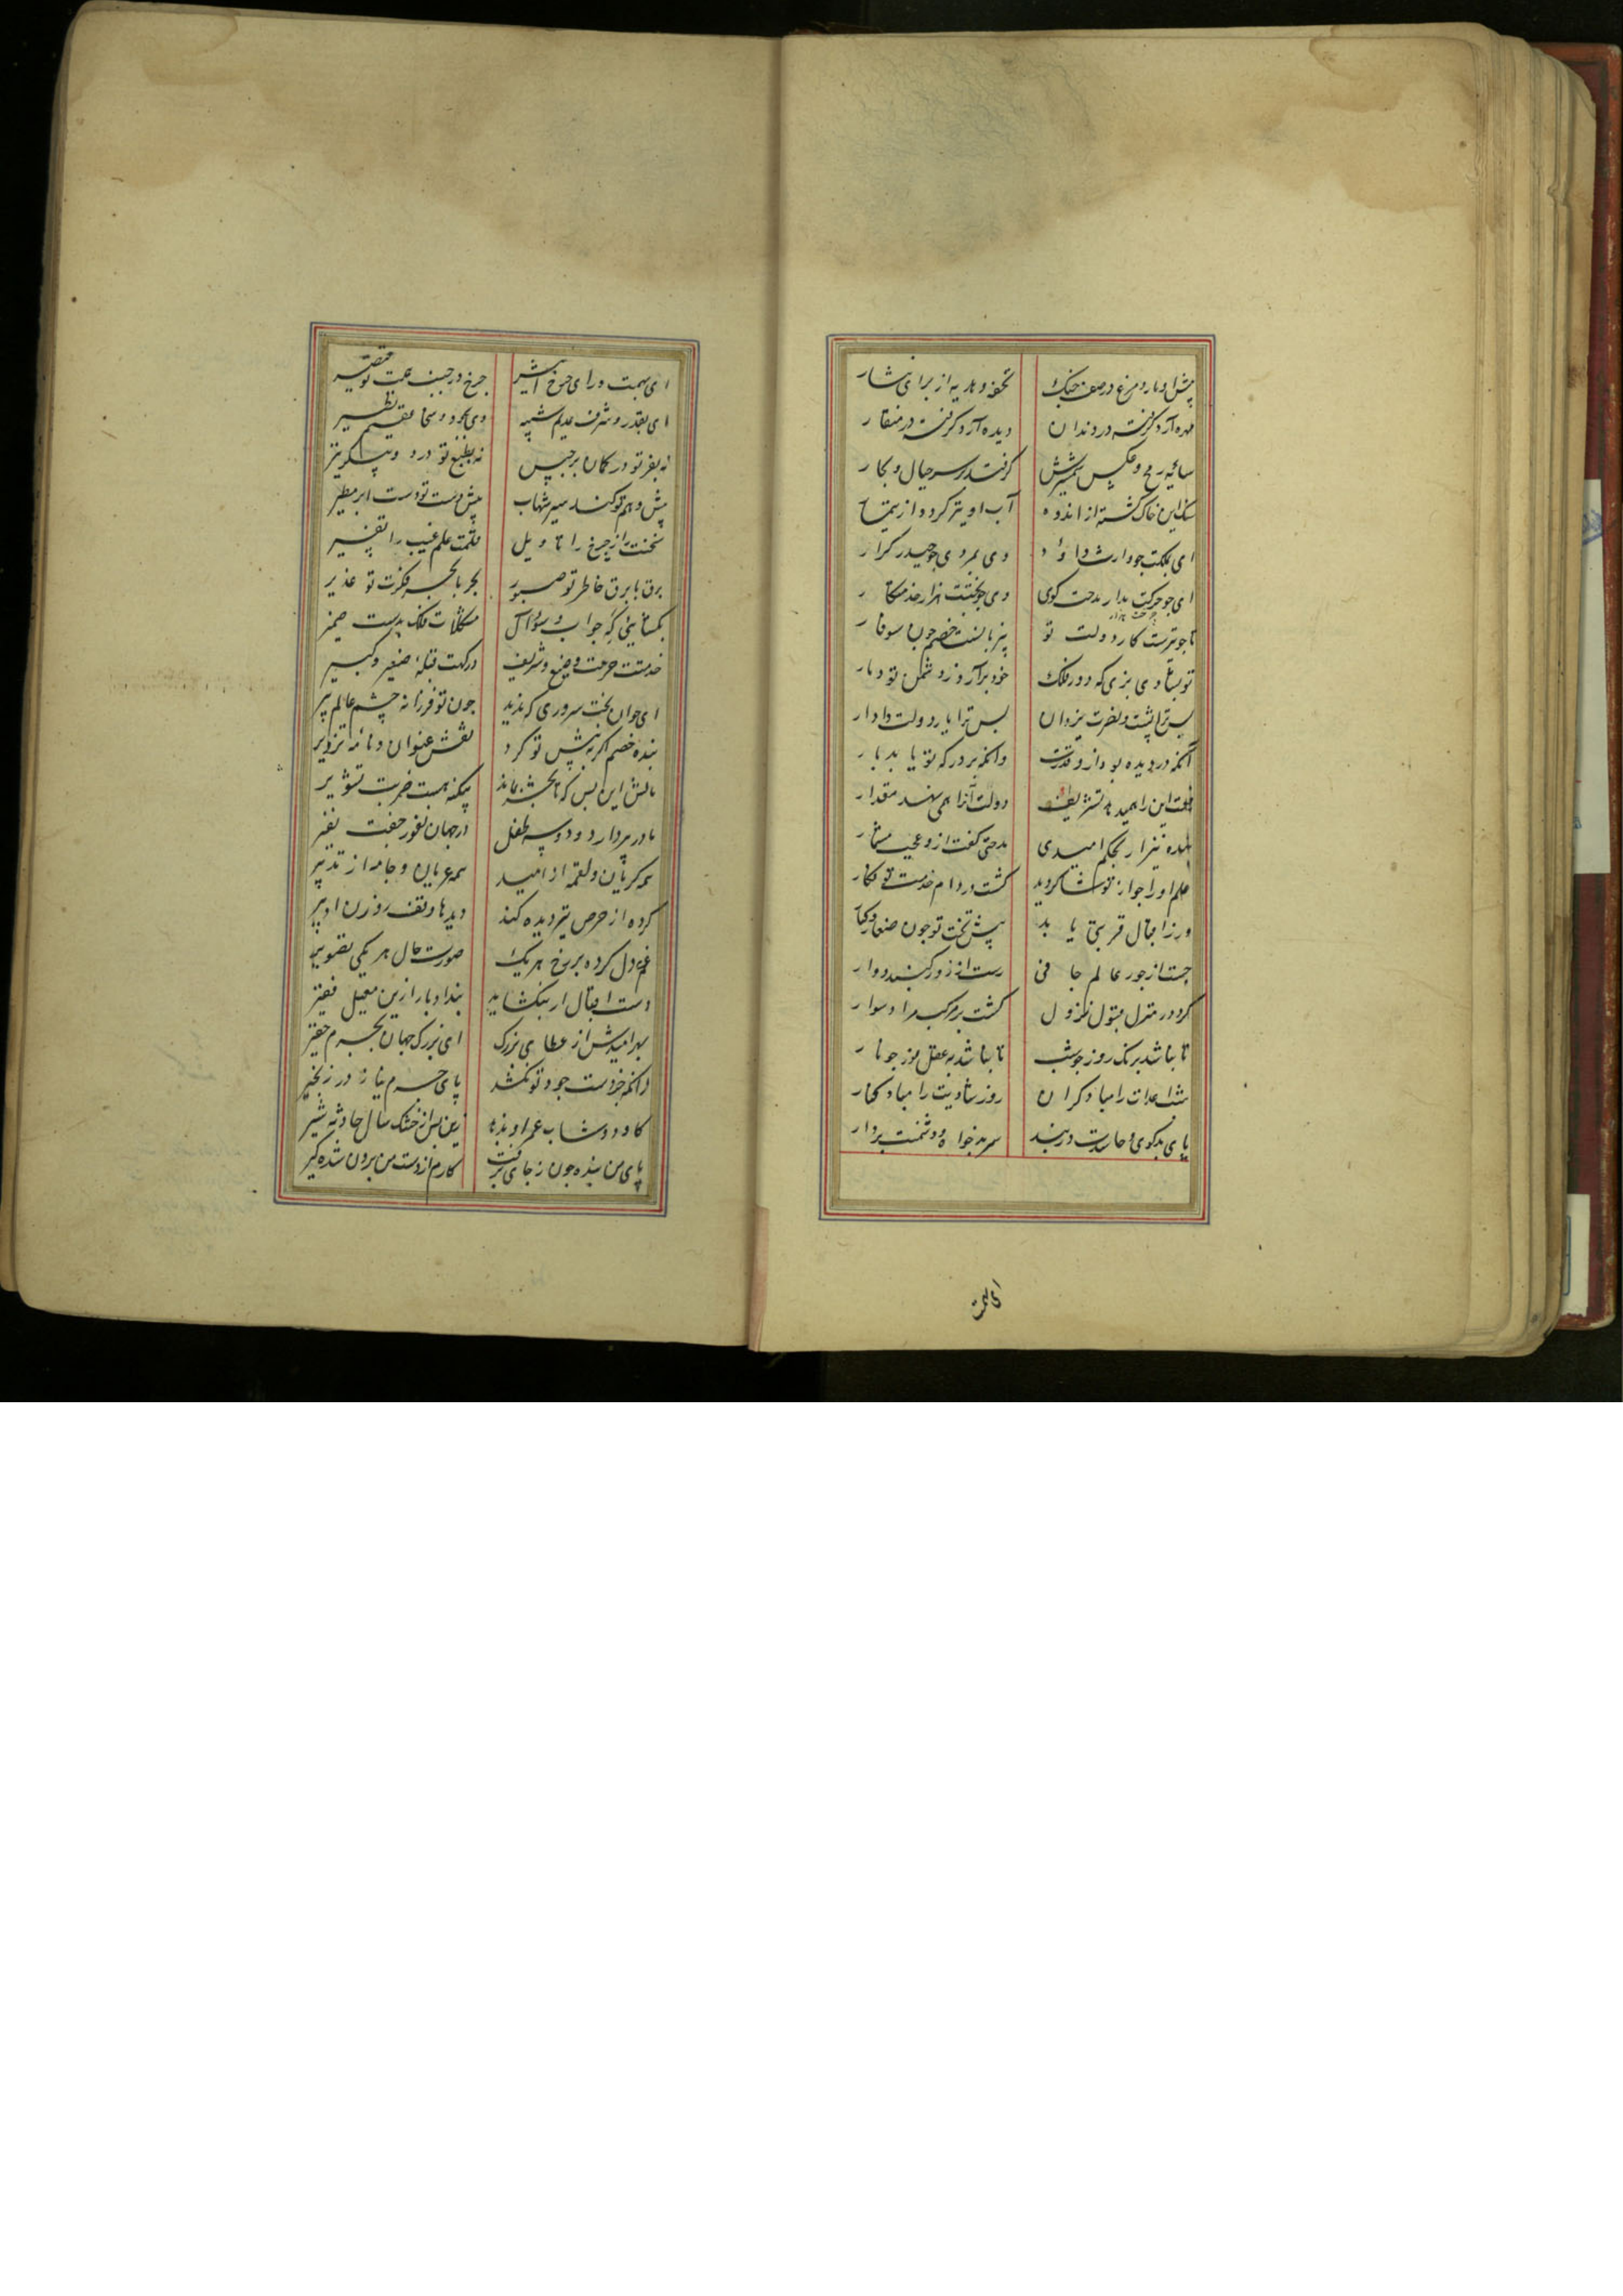 پیش او مار و مرغ در صف جنک تحفه و هدیه از برای نثار
مهره آرد گرفته در دندان دیده آرد گرفته در منقار
سایه رمح و عکس شمشیرش گرفتد بر سر جبال و بحار
سنک این خاک گشته از اندوه آب او تیره گردد از تیمار
ای بملکت جو وارث داود وی بمردی جو حیدر کرار
ای جو جرکت هزار مدحت کوی وی جو بختت هزار خدمتکار
تا جو تیرست کار دولت تو بر زبانست خصم جون سوفار
تو بشادی بزی که دور فلک خود برآرد ز دشمن تو دمار
بس ترا پشت و نصرت یزدان بس ترا یار دولت دادار
آنکه در دیده بو دارد قدرت وانکه بر درکه تو یابد بار
خلعت این را همی دهد تشریف دولت آنرا همی نهد مقدار
بنده نیز ار بحکم امیدی مدحتی گفت ازو عجب مشمار
حلم او را جو از تو شاکر دید گشت در دام خدمت تو شکار
ور ز اقبال قربتی یابد پیش تخت تو جون صغار و کبار
جست از جور عالم جافی رست از زور کنبد دوار
کرد در منزل قبول نزول گشت بر مرکب مراد سوار
تا نباشد برنک روز جو شب تا نباشد به عقل مور جو مار
شب اعدات را مباد کران روز شادیت را مباد کنار
پای بدکوی و حاسدت در بند سر بدخواه و دشمنت بر دار
ای بهمت ورای چرخ اثیر چرخ در جنب همت تو قصیر
ای بقدر و شرف عدیم شبیه وی بجود و سخا فقید نظیر
نه بفر تو در کمان برجیس نه بطبع تو در دو پیکر تیر
پیش وهم تو کند سیر شهاب پیش دست تو دست ابر مطیر
سخنت راز چرخ را تاویل قلمت علم غیب را تفسیر
برق با برق خاطر تو صبور بحر با بحر فکرت تو غدیر
بکشائی که جواب و سؤال مشکلات فلک بدست ضمیر
خدمتت حرمت وضیع و شریف درکهت قبله صغیر و کبیر
ای جوان بخت سروری که ندید جون تو فرزانه چشم عالم پیر
بنده خصم اگر به پیش تو کرد نقش عنوان و نامه تزویر
مالش این بس که تا بحشر بماند پیکنه بهت ضربت تشویر
مادر پردارد و دو سه طفل در جهان نفور جفت نفیر
همه کریان و لقمه از امید همه عریان و جامه از تدبیر
کرده از حرص تیز و دیده کند دیدها وقف روزن ادبیر
غم دل کرده بر رخ هر یک صورت حال هر یکی تصویر
دست اقبال ار بنکشاید بند ادبار ازین معیل فقیر
بهر امیدش از عطای بزرک ای بزرک جهان بجرم حقیر
زانکه جز دست جود تو نکشد پای حرص نیاز در زنجیر
کاو دوشاب عمر او ندهد زین بس از خشک سال حادثه شیر
پای من بنده جون ز جای برفت کارم از دست من برون شده گیر